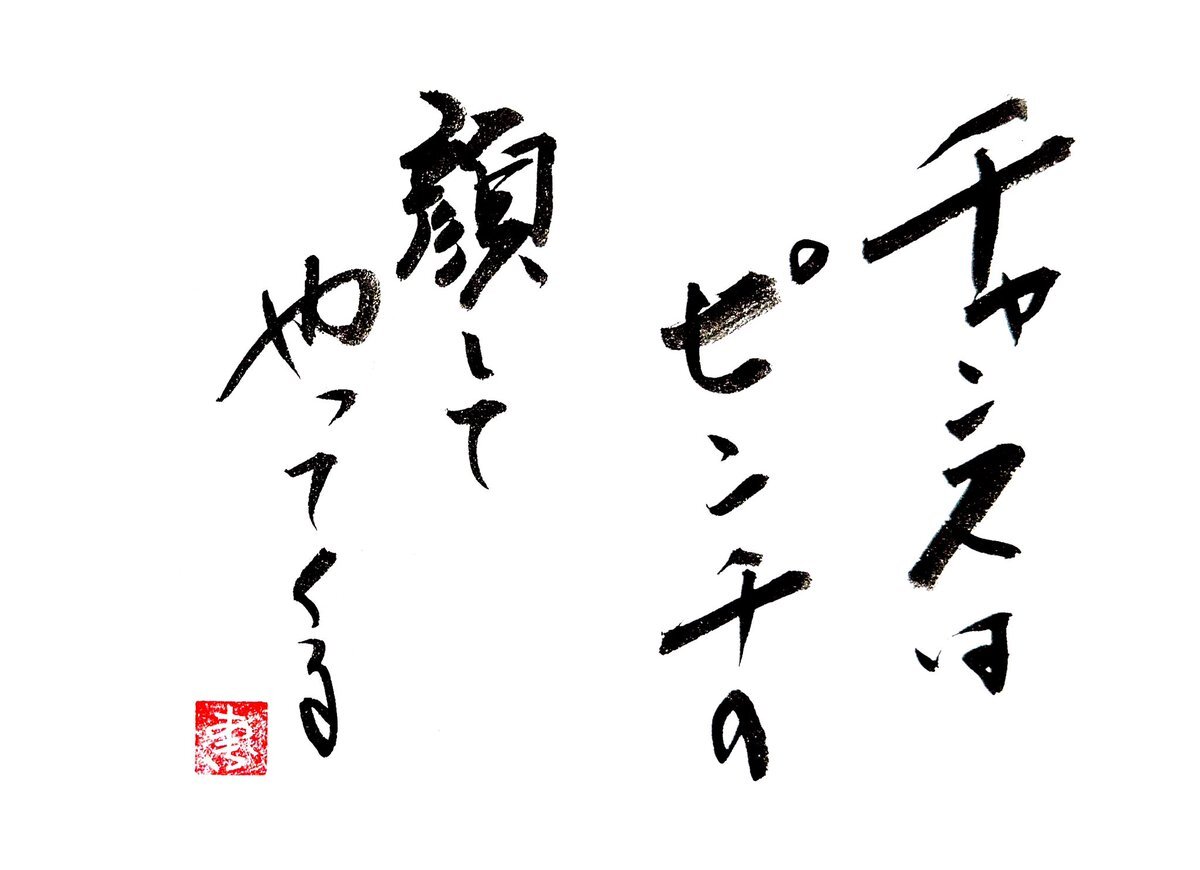 チャンスは
ピンチの
顔して
やってくる